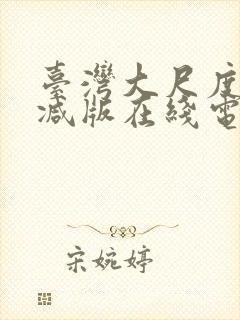 臺灣大尺度
减版在綫電
宋婉婷